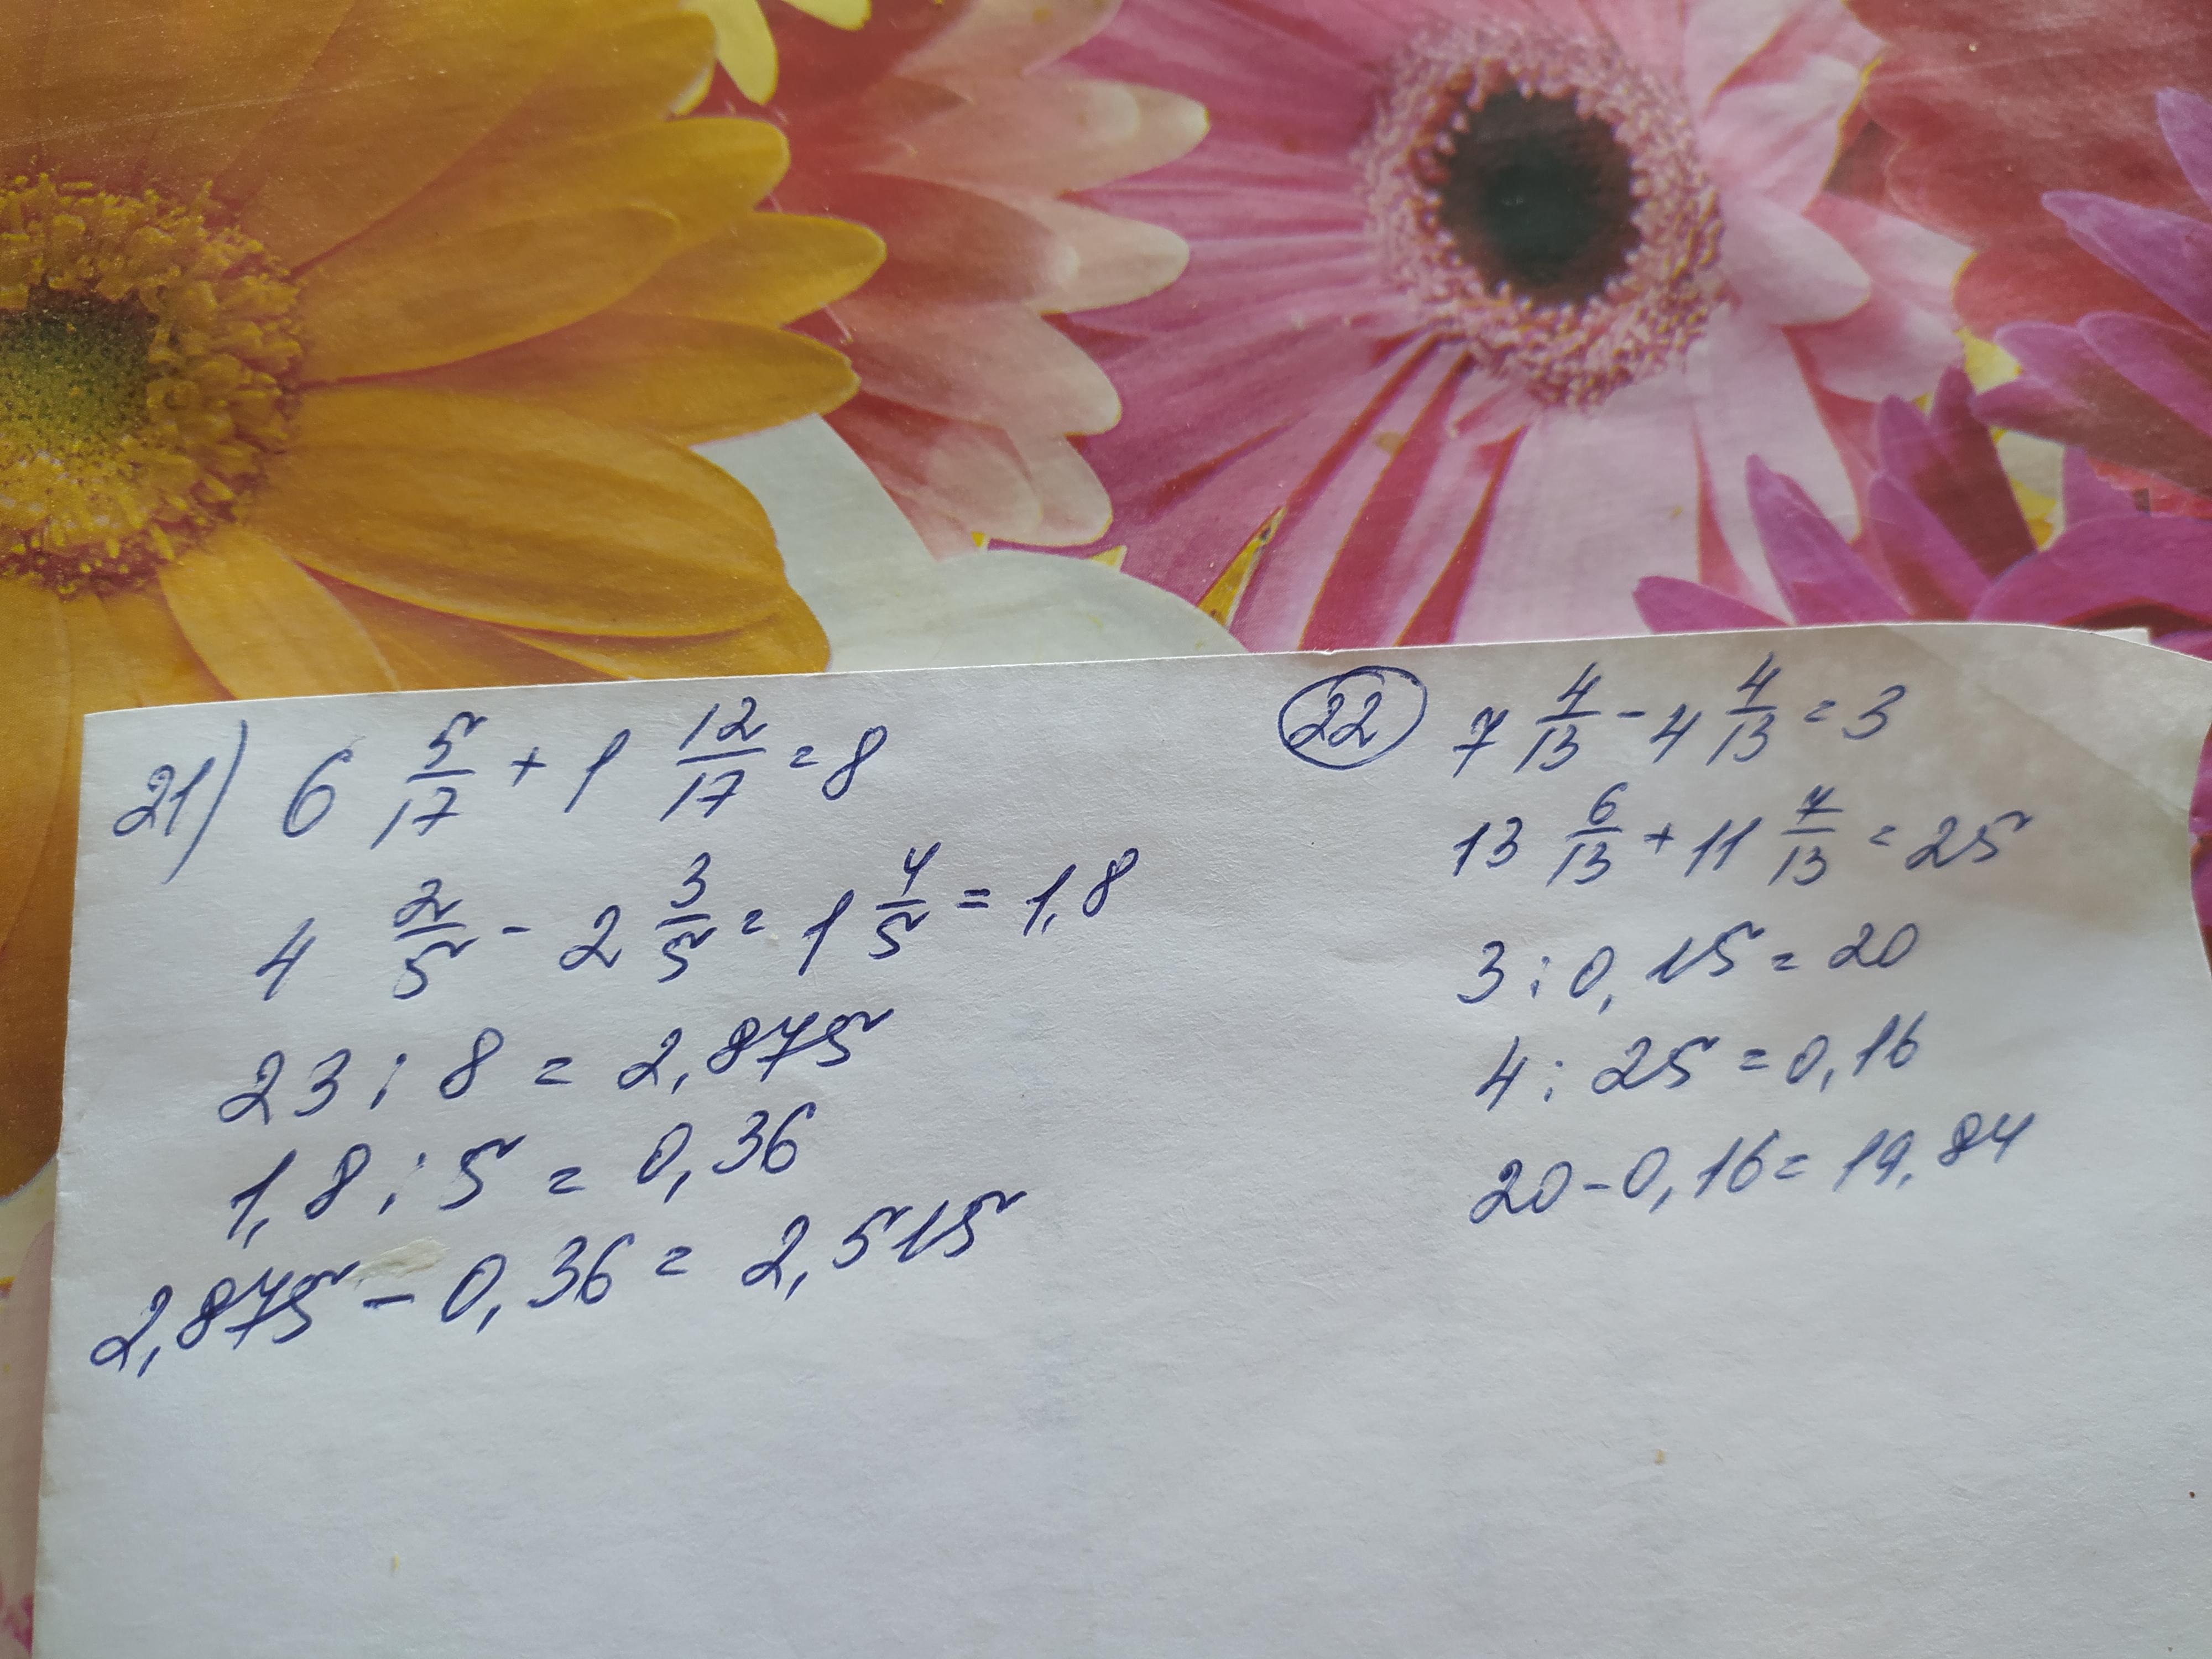 21) 6 5/17 + 1 12/17 = 8
4 2/5 - 2 3/5 = 1 4/5 = 1,8
23 : 8 = 2,875
1,8 : 5 = 0,36
2,875 - 0,36 = 2,515
22 7 4/13 - 4 4/13 = 3
13 6/13 + 11 7/13 = 25
3 : 0,15 = 20
4 : 25 = 0,16
20 - 0,16 = 19,84